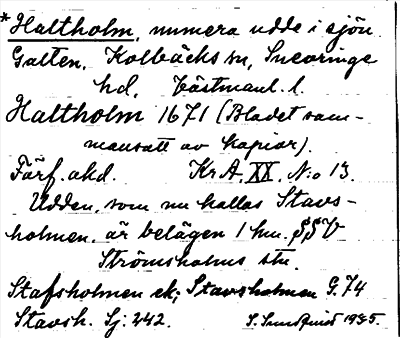 *Haltholm, numera udde i sjön
Galten. Kolbäcks sn, Snevringe
hd, Västmanl. l.
Haltholm 1671 (Bladet sam-
mansatt av kopior).
Förf. akd. Kr A. XX. No 13.
Udden, som nu kallas Stavs-
holmen, är belägen 1 km. SSV
Strömsholms stn.
Stafsholmen ek; Stavsholmen G. 74
Stavsh. Sj. 242. S. Sundquist 1935.